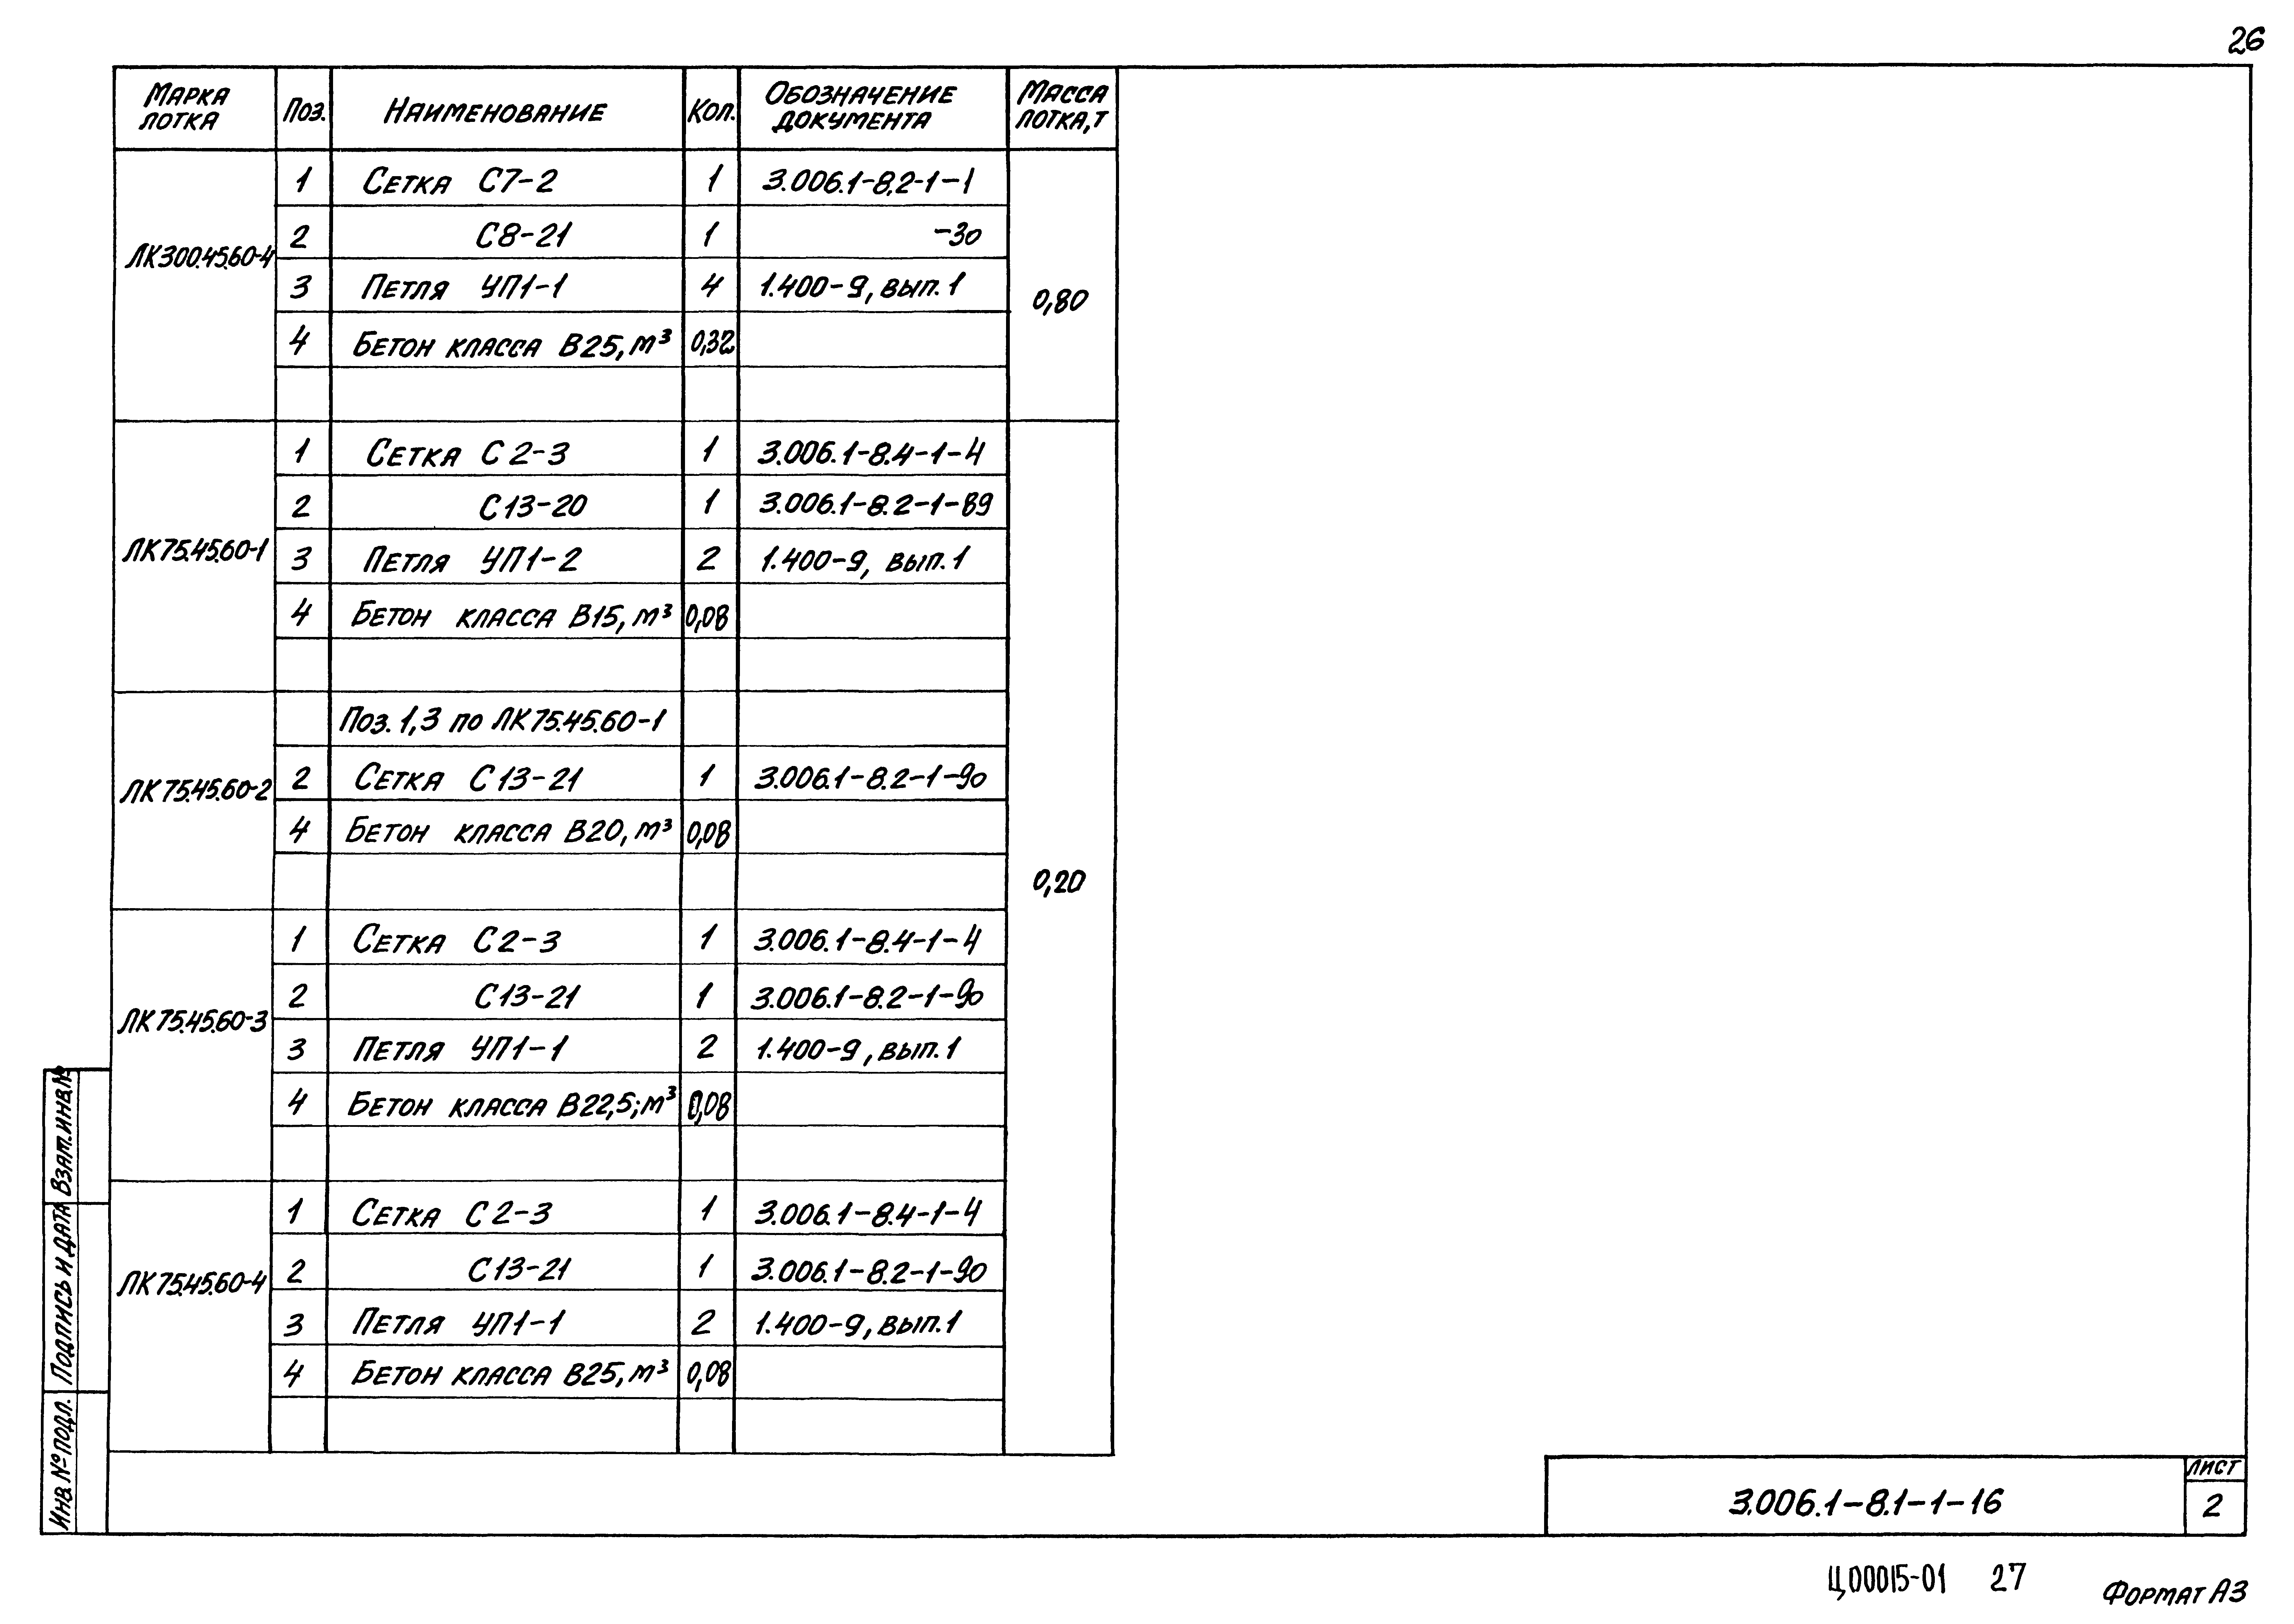 26
Марка лотка | Поз. | Наименование | Кол. | Обозначение документа | Масса лотка, т
ЛК300.45.60-4 | 1 | Сетка С7-2 | 1 | 3.006.1-8.2-1-1 | 0,80
2 | С8-21 | 1 | -30
3 | Петля УП1-1 | 4 | 1.400-9, вып. 1
4 | Бетон класса В25, м³ | 0,32
ЛК75.45.60-1 | 1 | Сетка С2-3 | 1 | 3.006.1-8.4-1-4 | 0,20
2 | С13-20 | 1 | 3.006.1-8.2-1-89
3 | Петля УП1-2 | 2 | 1.400-9, вып. 1
4 | Бетон класса В15, м³ | 0,08
ЛК75.45.60-2 | Поз. 1,3 по ЛК75.45.60-1
2 | Сетка С13-21 | 1 | 3.006.1-8.2-1-90
4 | Бетон класса В20, м³ | 0,08
ЛК75.45.60-3 | 1 | Сетка С2-3 | 1 | 3.006.1-8.4-1-4
2 | С13-21 | 1 | 3.006.1-8.2-1-90
3 | Петля УП1-1 | 2 | 1.400-9, вып. 1
4 | Бетон класса В22,5; м³ | 0,08
ЛК75.45.60-4 | 1 | Сетка С2-3 | 1 | 3.006.1-8.4-1-4
2 | С13-21 | 1 | 3.006.1-8.2-1-90
3 | Петля УП1-1 | 2 | 1.400-9, вып. 1
4 | Бетон класса В25, м³ | 0,08
Взам. инв. №
Подпись и дата
Инв. № подл.
3.006.1-8.1-1-16
Лист
2
Ц00015-01 27
Формат А3